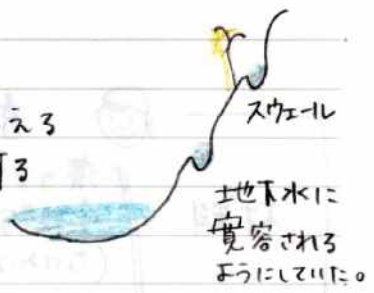 える
る
スウェール
地下水に
寛容される
ようにしていた。